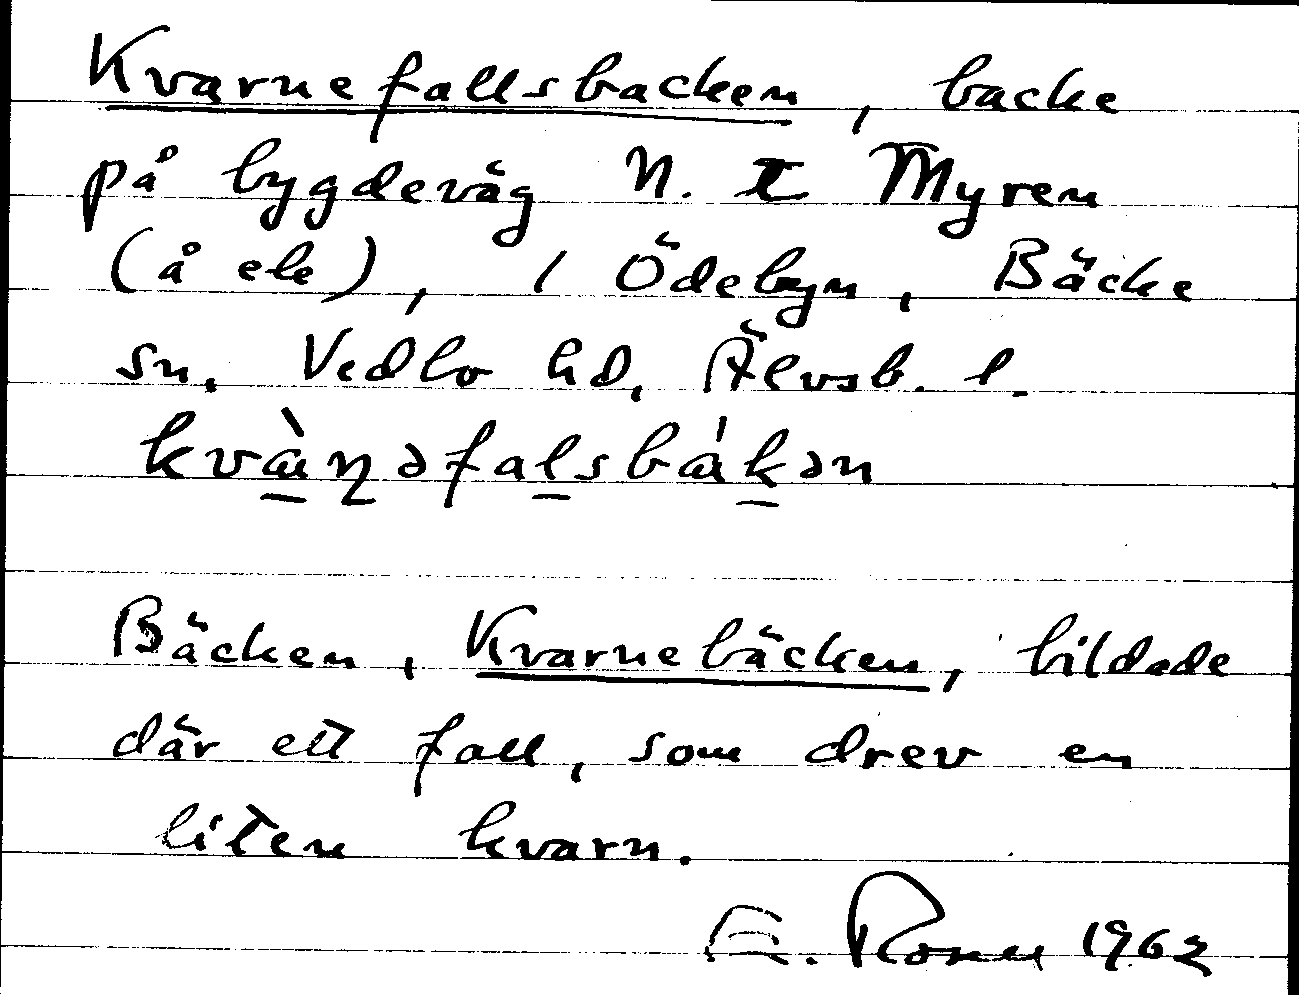 Kvarnefallsbacken, backe
på bygdeväg N. t Myren
(å ek), i Ödebyn, Bäcke
sn. Vedbo hd, Älvsb. l.
kvànəfalsbákən
Bäcken, Kvarnebäcken, bildade
där ett fall, som drev en
liten kvarn.
E. 1962